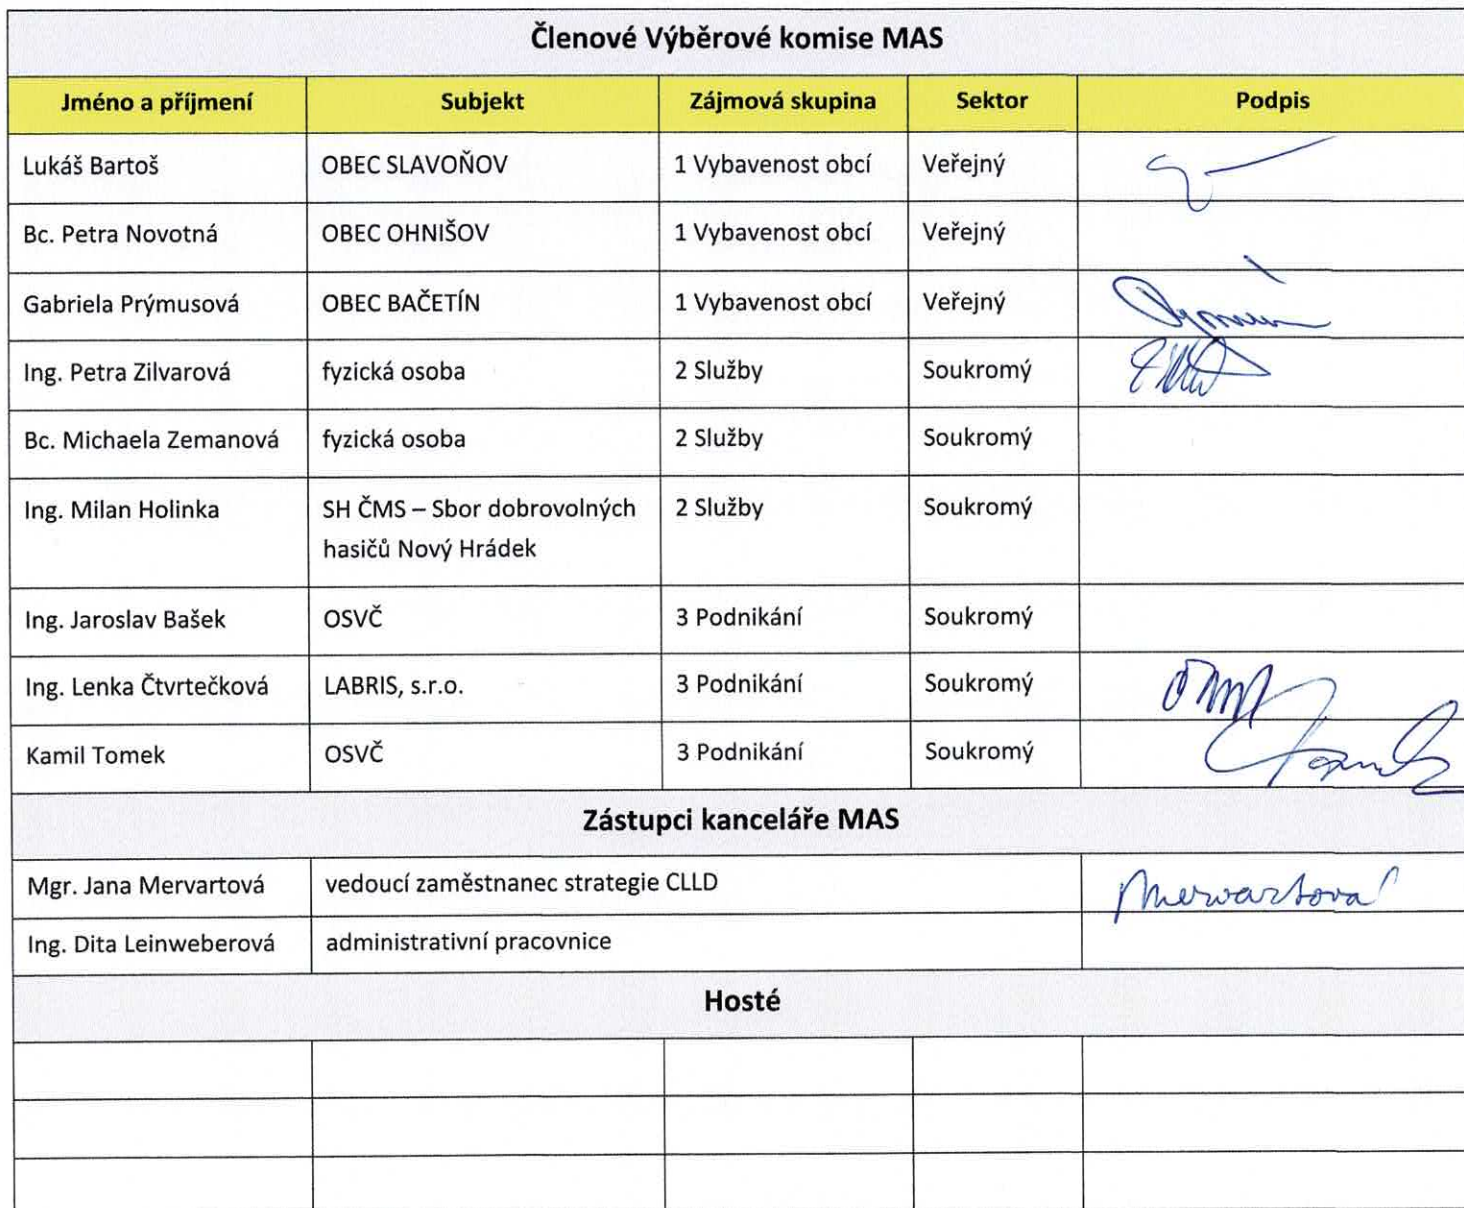 Členové Výběrové komise MAS
Jméno a příjmení Subjekt Zájmová skupina Sektor Podpis
Lukáš Bartoš OBEC SLAVOŇOV 1 Vybavenost obcí Veřejný
Bc. Petra Novotná OBEC OHNIŠOV 1 Vybavenost obcí Veřejný
Gabriela Prýmusová OBEC BAČETÍN 1 Vybavenost obcí Veřejný
Ing. Petra Zilvarová fyzická osoba 2 Služby Soukromý
Bc. Michaela Zemanová fyzická osoba 2 Služby Soukromý
Ing. Milan Holinka SH ČMS – Sbor dobrovolných 2 Služby Soukromý
hasičů Nový Hrádek
Ing. Jaroslav Bašek OSVČ 3 Podnikání Soukromý
Ing. Lenka Čtvrtečková LABRIS, s.r.o. 3 Podnikání Soukromý
Kamil Tomek OSVČ 3 Podnikání Soukromý
Zástupci kanceláře MAS
Mgr. Jana Mervartová vedoucí zaměstnanec strategie CLLD Mervartová
Ing. Dita Leinweberová administrativní pracovnice
Hosté